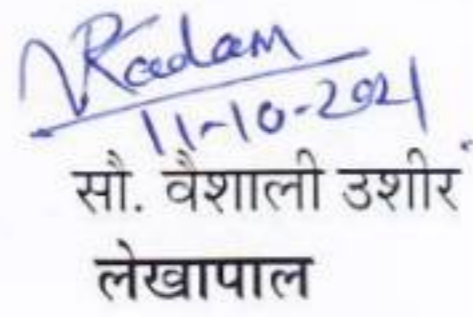 VKadam
11-10-2021
सौ. वैशाली उशीर
लेखापाल